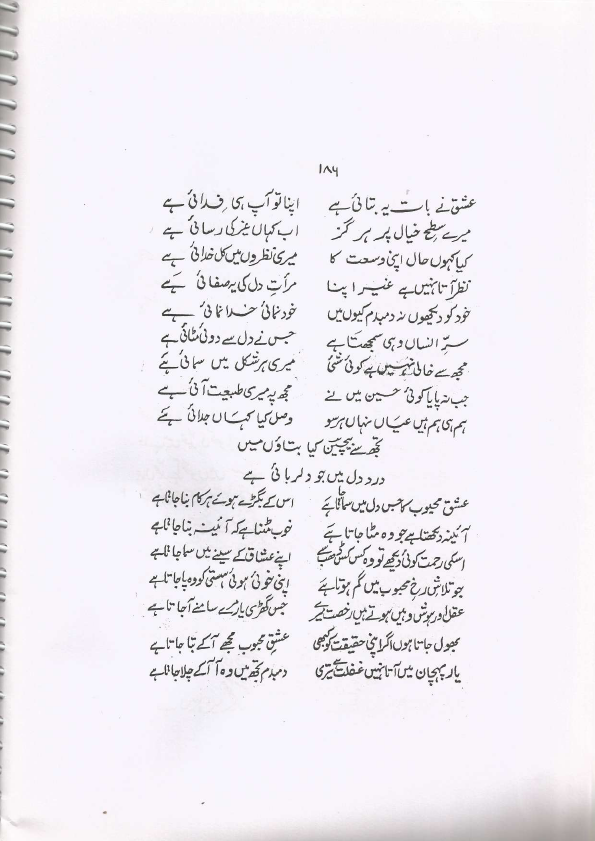 ۱۸۵
عشق نے بات یہ بتائی ہے اپنا تو آپ ہی فدائی ہے
میرے سطح خیال پر ہر گز اب کہاں غیر کی رسائی ہے
کیا کہوں حال اپنی وسعت کا میری نظروں میں کل خدائی ہے
نظر آتا نہیں ہے غیر اپنا مرأتِ دل کی یہ صفائی ہے
خود کو دیکھوں نہ دمبدم کیوں میں خود نمائی خدا نمائی ہے
سرِّ انساں وہی سمجھتا ہے جس نے دل سے دوئی مٹائی ہے
مجھ سے خالی نہیں ہے کوئی شئی میری ہر شکل میں سمائی ہے
جب نہ پایا کوئی حسین میں نے مجھ پہ میری طبیعت آئی ہے
ہم ہی ہم ہیں عیاں نہاں ہر سو وصل کیا کہاں جدائی ہے
تجھ سے بیچین کیا بتاؤں میں
درد دل میں جو دلربائی ہے
عشق محبوب کا جس دل میں سما جاتا ہے اس کے بگڑے ہوئے ہر کام بنا جاتا ہے
آئینہ دیکھتا ہے جو وہ مٹا جاتا ہے خوب مٹنا ہے کہ آئینہ بنا جاتا ہے
اسکی رحمت کوئی دیکھے تو وہ کس کس ڈھب سے اپنے عشاق کے سینے میں سما جاتا ہے
جو تلاشِ رخِ محبوب میں گم ہوتا ہے اپنی کھوئی ہوئی ہستی کو وہ پا جاتا ہے
عقل اور ہوش وہیں ہوتے ہیں رخصت میرے جس گھڑی یار مرے سامنے آ جاتا ہے
بھول جاتا ہوں اگر اپنی حقیقت کو کبھی عشقِ محبوب مجھے آ کے بتا جاتا ہے
یار پہچان میں آتا نہیں غفلت ہے تیری دمبدم تجھ میں وہ آ آ کے چلا جاتا ہے